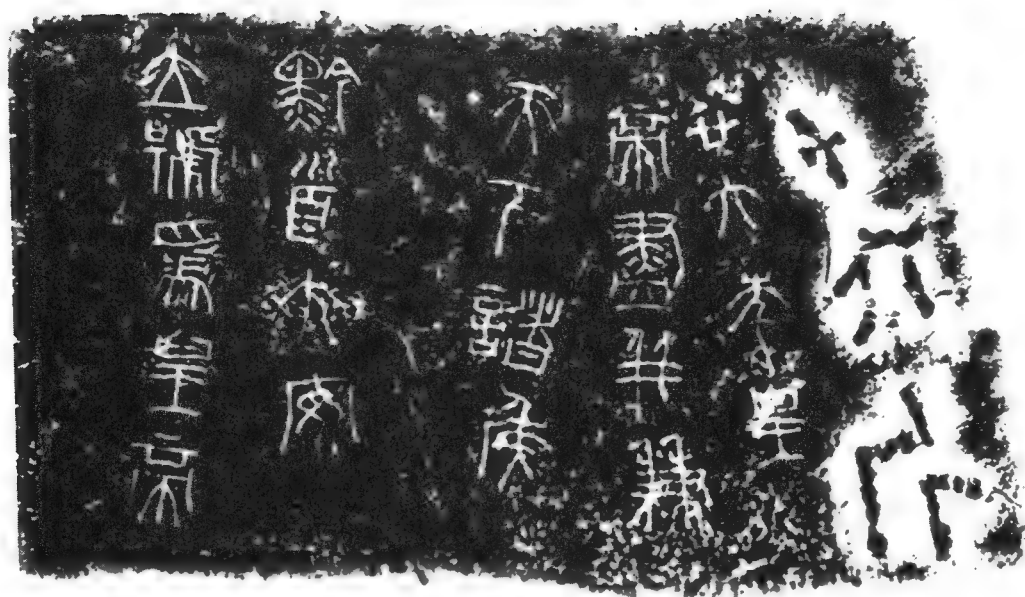 廿六年皇
帝盡并兼
天下諸侯
黔首大安
立號為皇帝